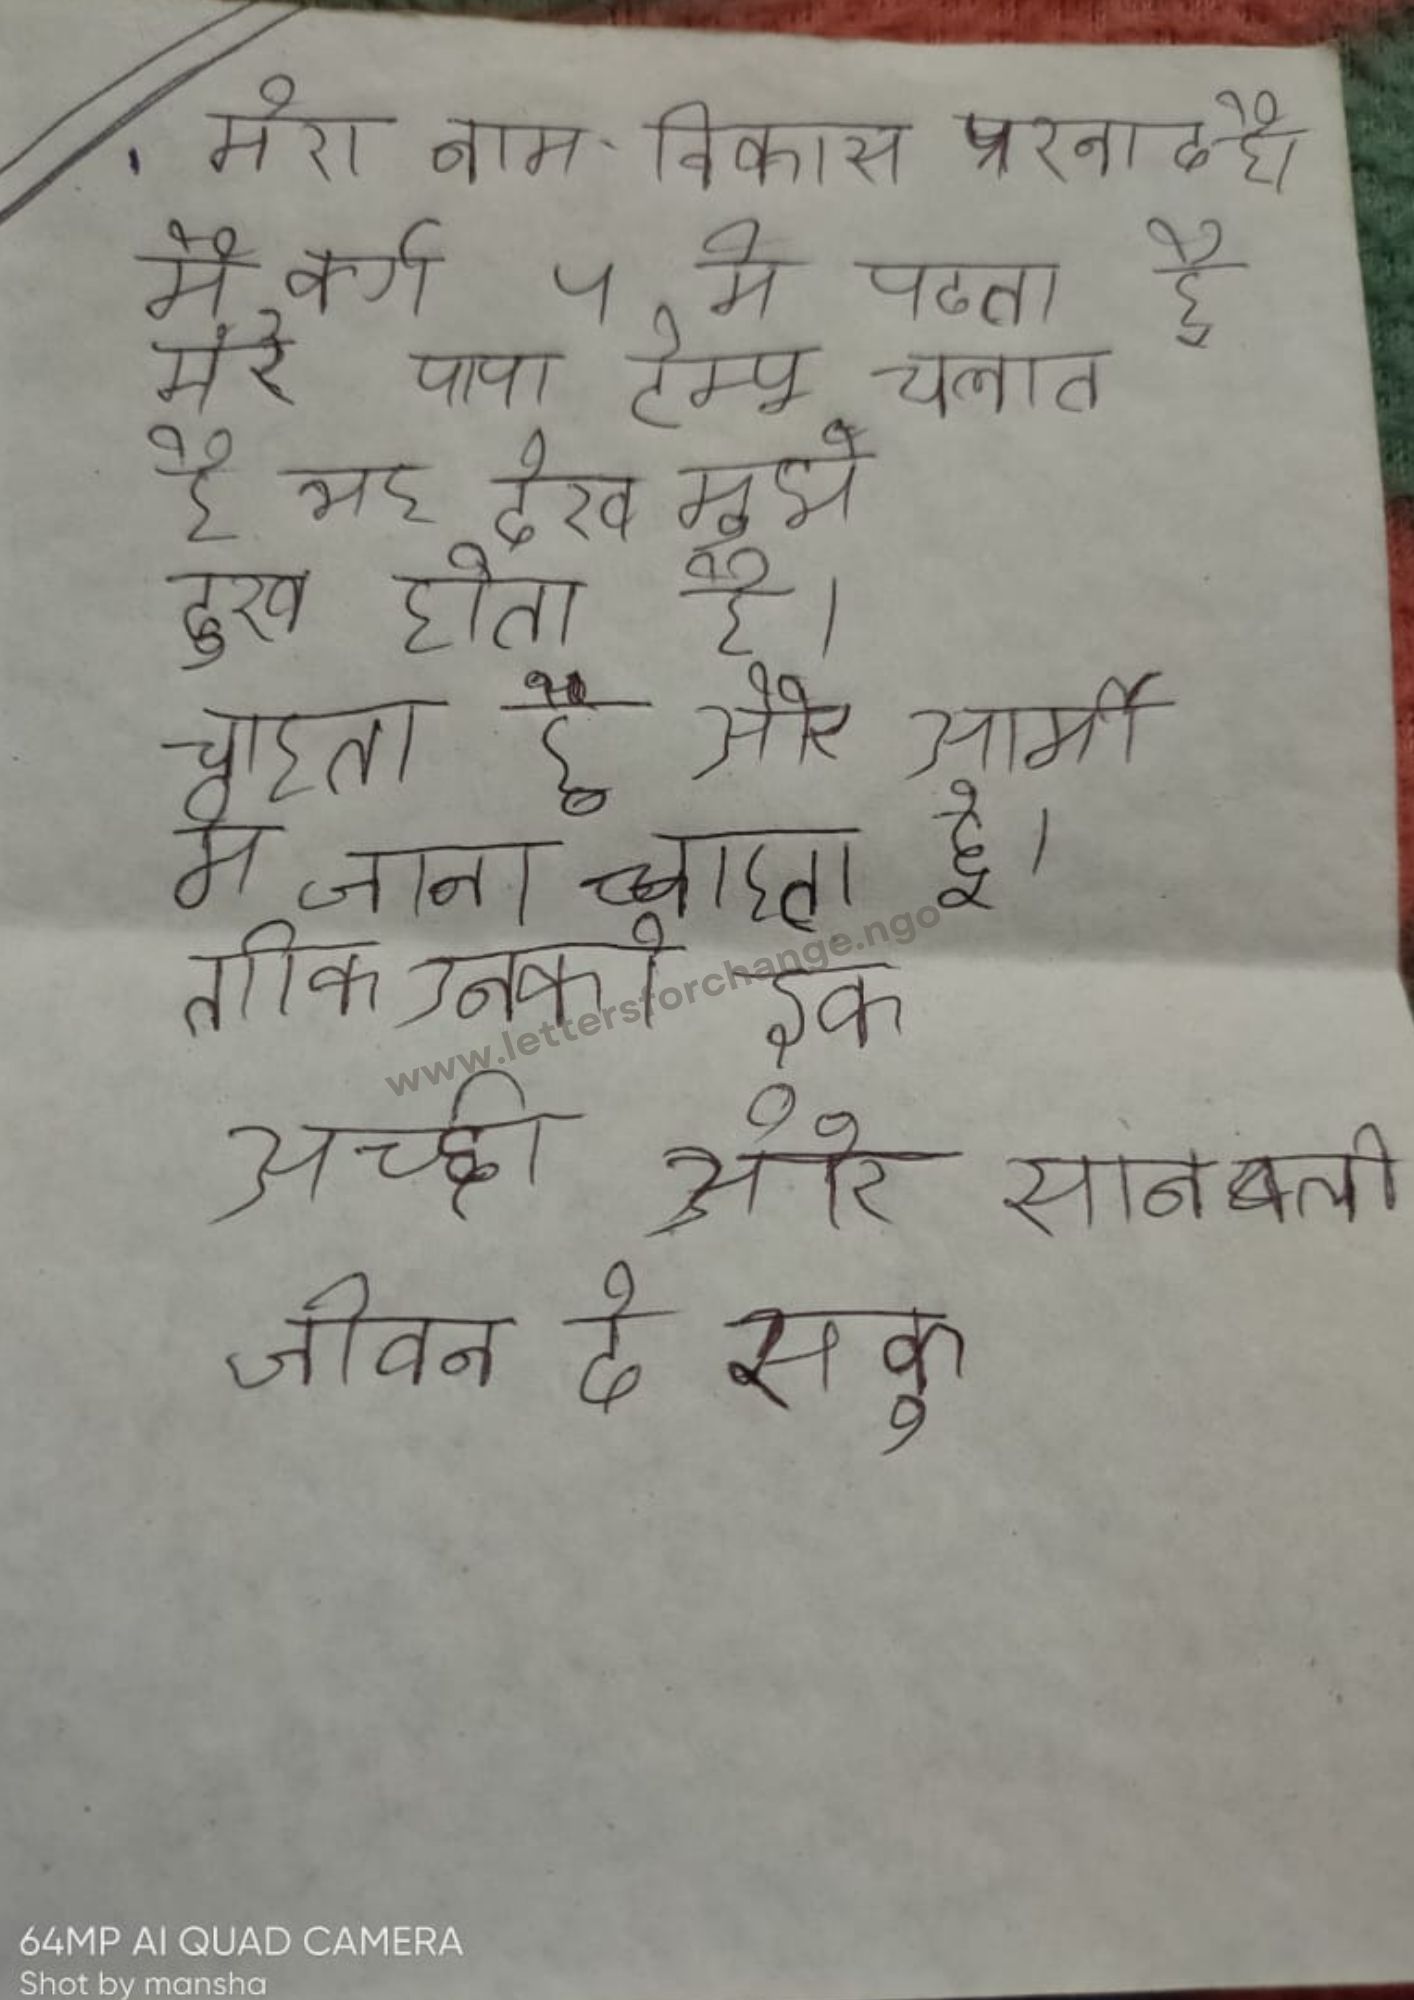 मेरा नाम विकास प्ररनाद है।
मै वर्ग ५ मे पढता है
मेरे पापा टेम्पू चलात
है भह देख मुझे
दुख होता है।
चाहता हूँ और आर्मी
मे जाना चाहता हूँ।
ताकि उनको इक
www.lettersforchange.ngo
अच्छी और सानबली
जीवन दे सकु
64MP AI QUAD CAMERA
Shot by mansha